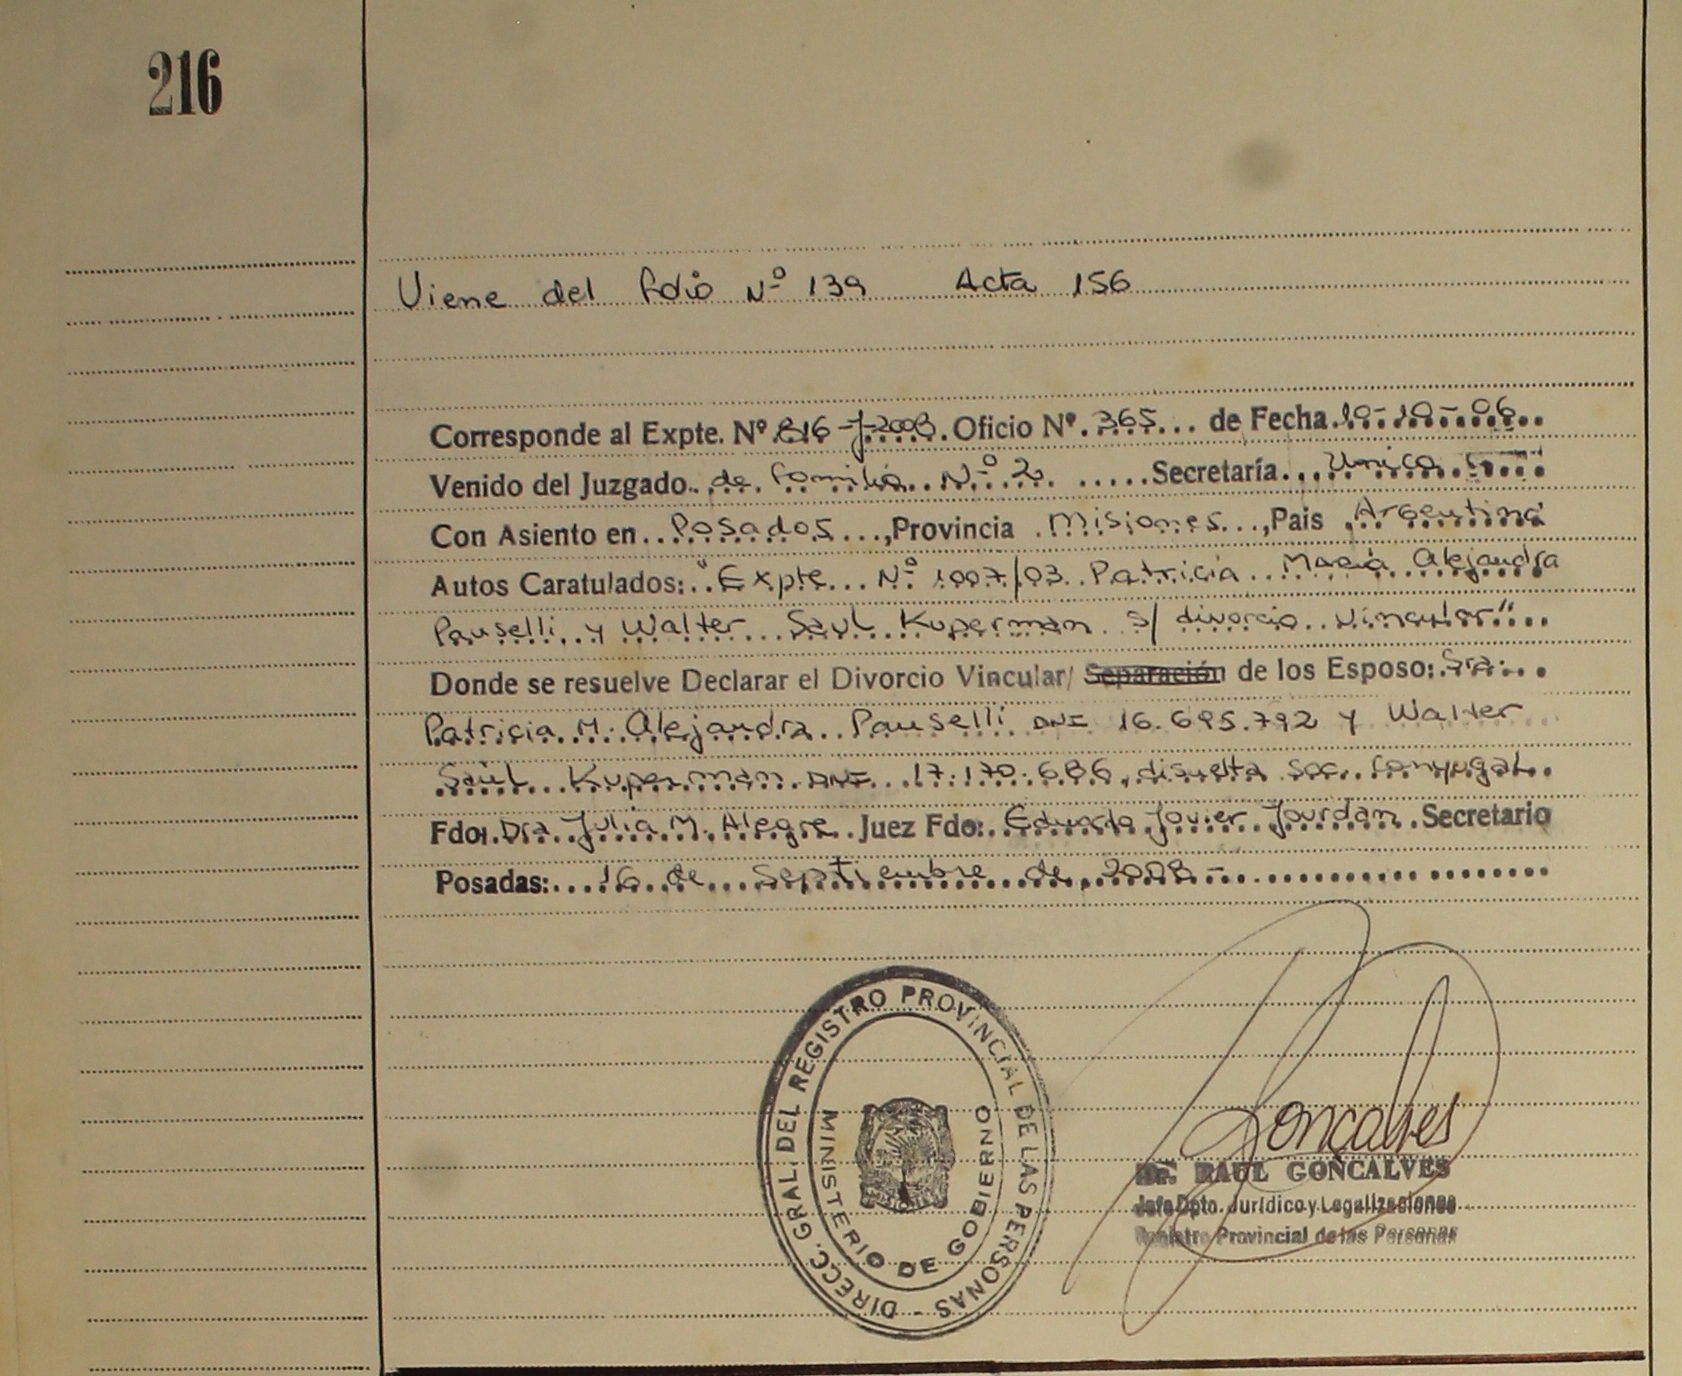 216
Viene del folio Nº 139 Acta 156
Corresponde al Expte. Nº 816-J-2008. Oficio Nº. 365... de Fecha. 10-10-06..
Venido del Juzgado.. de familia.. Nº 2. .....Secretaría... Unica
Con Asiento en.. Posadas...,Provincia .Misiones...,Pais .Argentina
Autos Caratulados:.."Expte... Nº 1007/03. Patricia... Maria Alejandra
Pauselli. y Walter... Saul Kuperman s/ divorcio.. vincular"...
Donde se resuelve Declarar el Divorcio Vincular/ Separación de los Esposo:.Sra...
Patricia. M. Alejandra.. Pauselli DNI 16.695.792 y Walter
Saúl... Kuperman DNI... 17.170.686, disuelta soc. conyugal..
Fdo:.Dra Julia. M. Alegre. Juez Fdo:. Eduardo Javier Jourdan. Secretario
Posadas:... 16 de... Septiembre de 2008-
DIRECC. GRAL. DEL REGISTRO PROVINCIAL DE LAS PERSONAS -
MINISTERIO DE GOBIERNO
Goncalves
Dr. RAUL GONCALVES
Jefe Dpto. Jurídico y Legalizaciones
Registro Provincial de las Personas